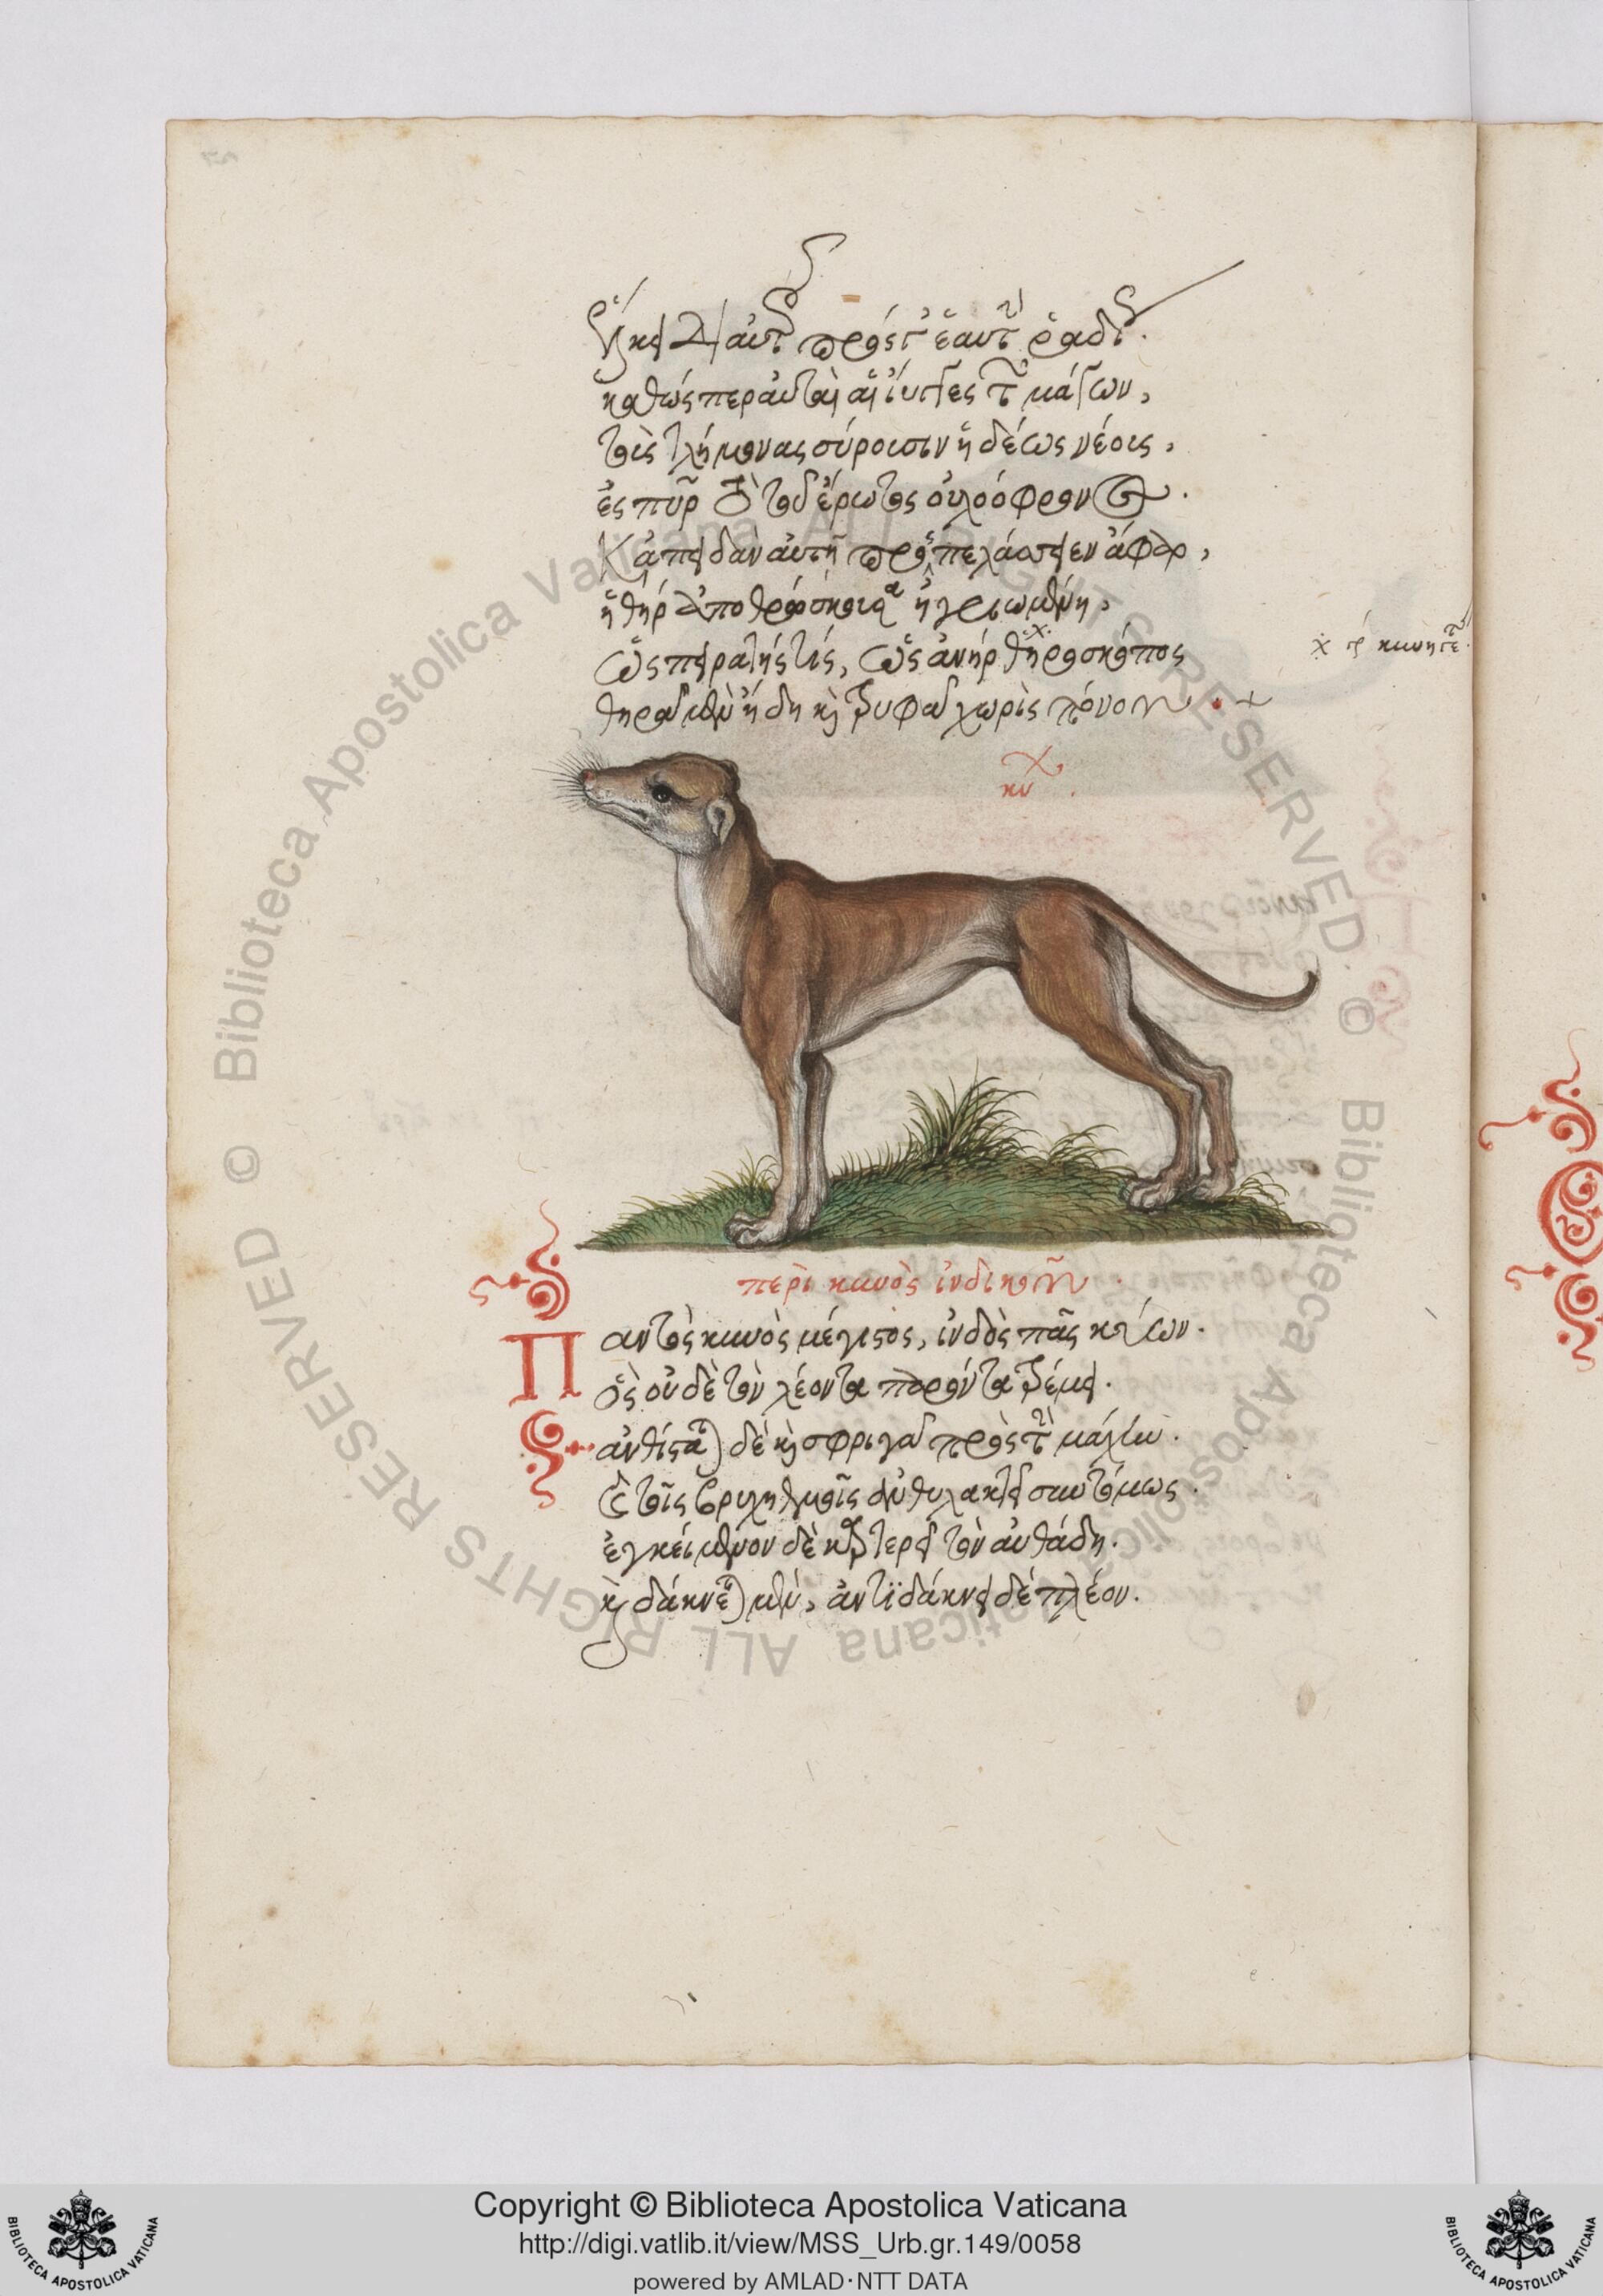 ἕλκει δι' αὐτῆς πρὸς ἑαυτὴν ῥαδίως.
καθώσπερ αὐταὶ αἱ ἴυγγες τῶν μάγων,
τοὺς τλήμονας σύρουσιν ἡδέως νέους,
ἐς πῦρ τὸ τοῦ ἔρωτος οὐλόφρονος.
Κἀπειδὰν αὐτῇ προσπελάσειεν ἄφαρ,
ἡ θὴρ ἀποθρώσκουσα ἠγριωμένη,
ὡς πειρατής τις, ὡς ἀνὴρ θηροσκόπος
θηρᾷ μὲν ἤδη καὶ τρυφᾷ χωρὶς πόνου.
χ γρ κυνηγέτης
κύων.
περὶ κυνὸς ἰνδικοῦ.
Παντὸς κυνὸς μέγιστος, ἰνδὸς πᾶς κύων.
ὃς οὐδὲ τὸν λέοντα παρόντα τρέμει.
ἀνθίσταται δὲ καὶ σφριγᾷ πρὸς τὴν μάχην.
καὶ τοῖς βρυχηθμοῖς ἀνθυλακτεῖ συντόμως.
ἐγκείμενον δὲ καρτερεῖ τὸν αὐθάδη.
καὶ δάκνεται μὲν, ἀντιδάκνει δὲ πλέον.
© Biblioteca Apostolica Vaticana ALL RIGHTS RESERVED
© Biblioteca Apostolica Vaticana ALL RIGHTS RESERVED
BIBLIOTECA APOSTOLICA VATICANA
Copyright © Biblioteca Apostolica Vaticana
http://digi.vatlib.it/view/MSS_Urb.gr.149/0058
powered by AMLAD·NTT DATA
BIBLIOTECA APOSTOLICA VATICANA